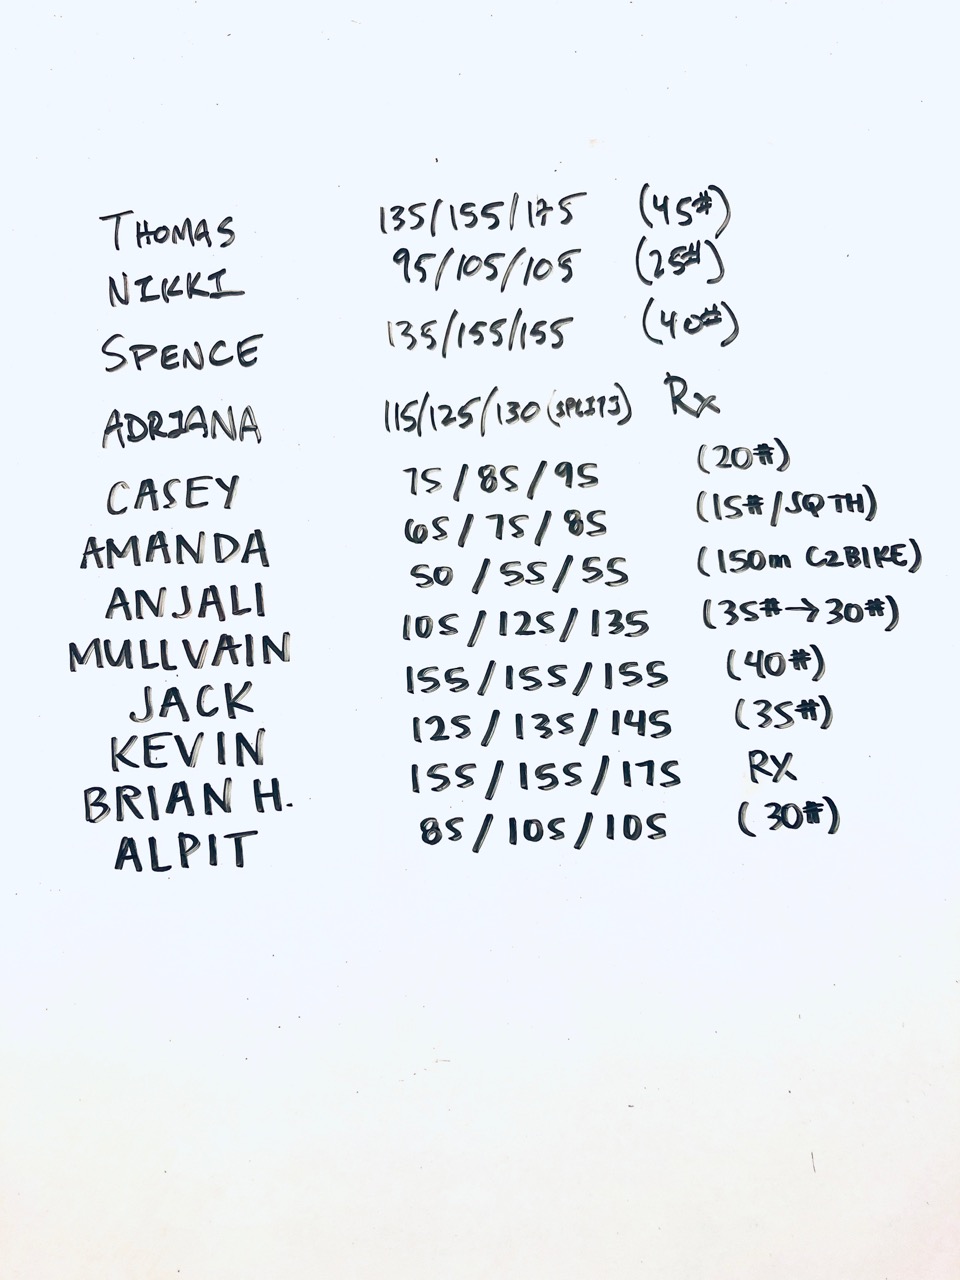 THOMAS 135/155/175 (45#)
NIKKI 95/105/105 (25#)
SPENCE 135/155/155 (40#)
ADRIANA 115/125/130 (SPLITJ) Rx
CASEY 75/85/95 (20#)
AMANDA 65/75/85 (15#/SQ TH)
ANJALI 50/55/55 (150m C2BIKE)
MULLVAIN 105/125/135 (35#→30#)
JACK 155/155/155 (40#)
KEVIN 125/135/145 (35#)
BRIAN H. 155/155/175 RX
ALPIT 85/105/105 (30#)